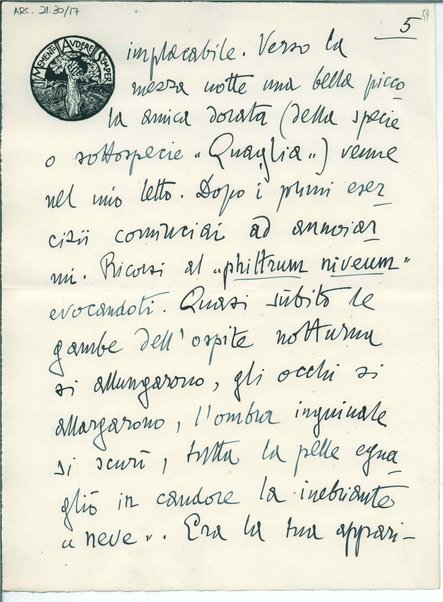 ARC. 21.30/17
5
MEMENTO AUDERE SEMPER
implacabile. Verso la
mezza notte una bella picco
la amica dorata (della specie
o sottospecie "Quaglia") venne
nel mio letto. Dopo i primi eser
cizii cominciai ad annoiar
mi. Ricorsi al "philtrum niveum"
evocandoti. Quasi sùbito le
gambe dell'ospite notturna
si allungarono, gli occhi si
allargarono, l'ombra inguinale
si scurì, tutta la pelle egua
gliò in candore la inebriante
"neve". Era la tua appari-